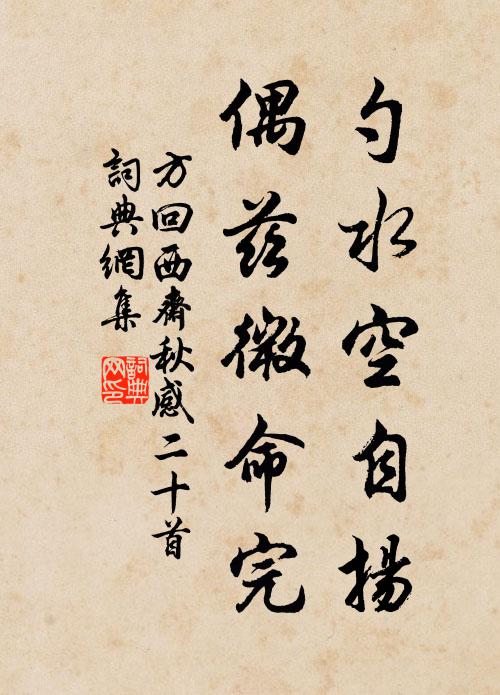 勺水空自揚
偶茲微命完
方回西齋秋感二十首
詞典網集
詞典網印